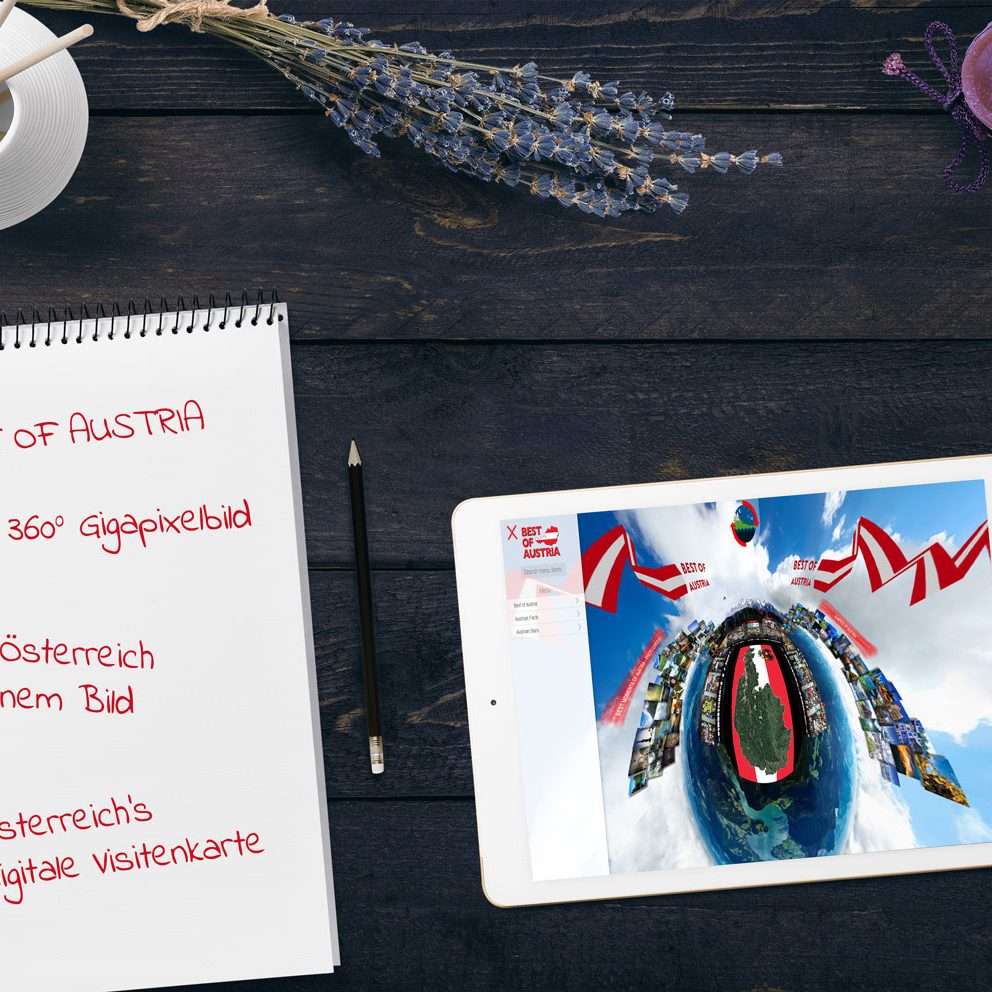 OF AUSTRIA
360° Gigapixelbild
Österreich
nem Bild
sterreich's
igitale Visitenkarte
BEST
OF
AUSTRIA
Search menu items
Menu
Best of Austria
Austrian Facts
Austrian Stars
BEST OF
AUSTRIA
BEST OF
AUSTRIA
BEST MOMENTS OF AUSTRIA